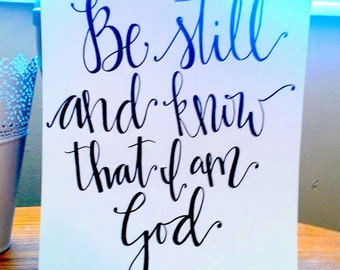 Be still
and know
that I am
God